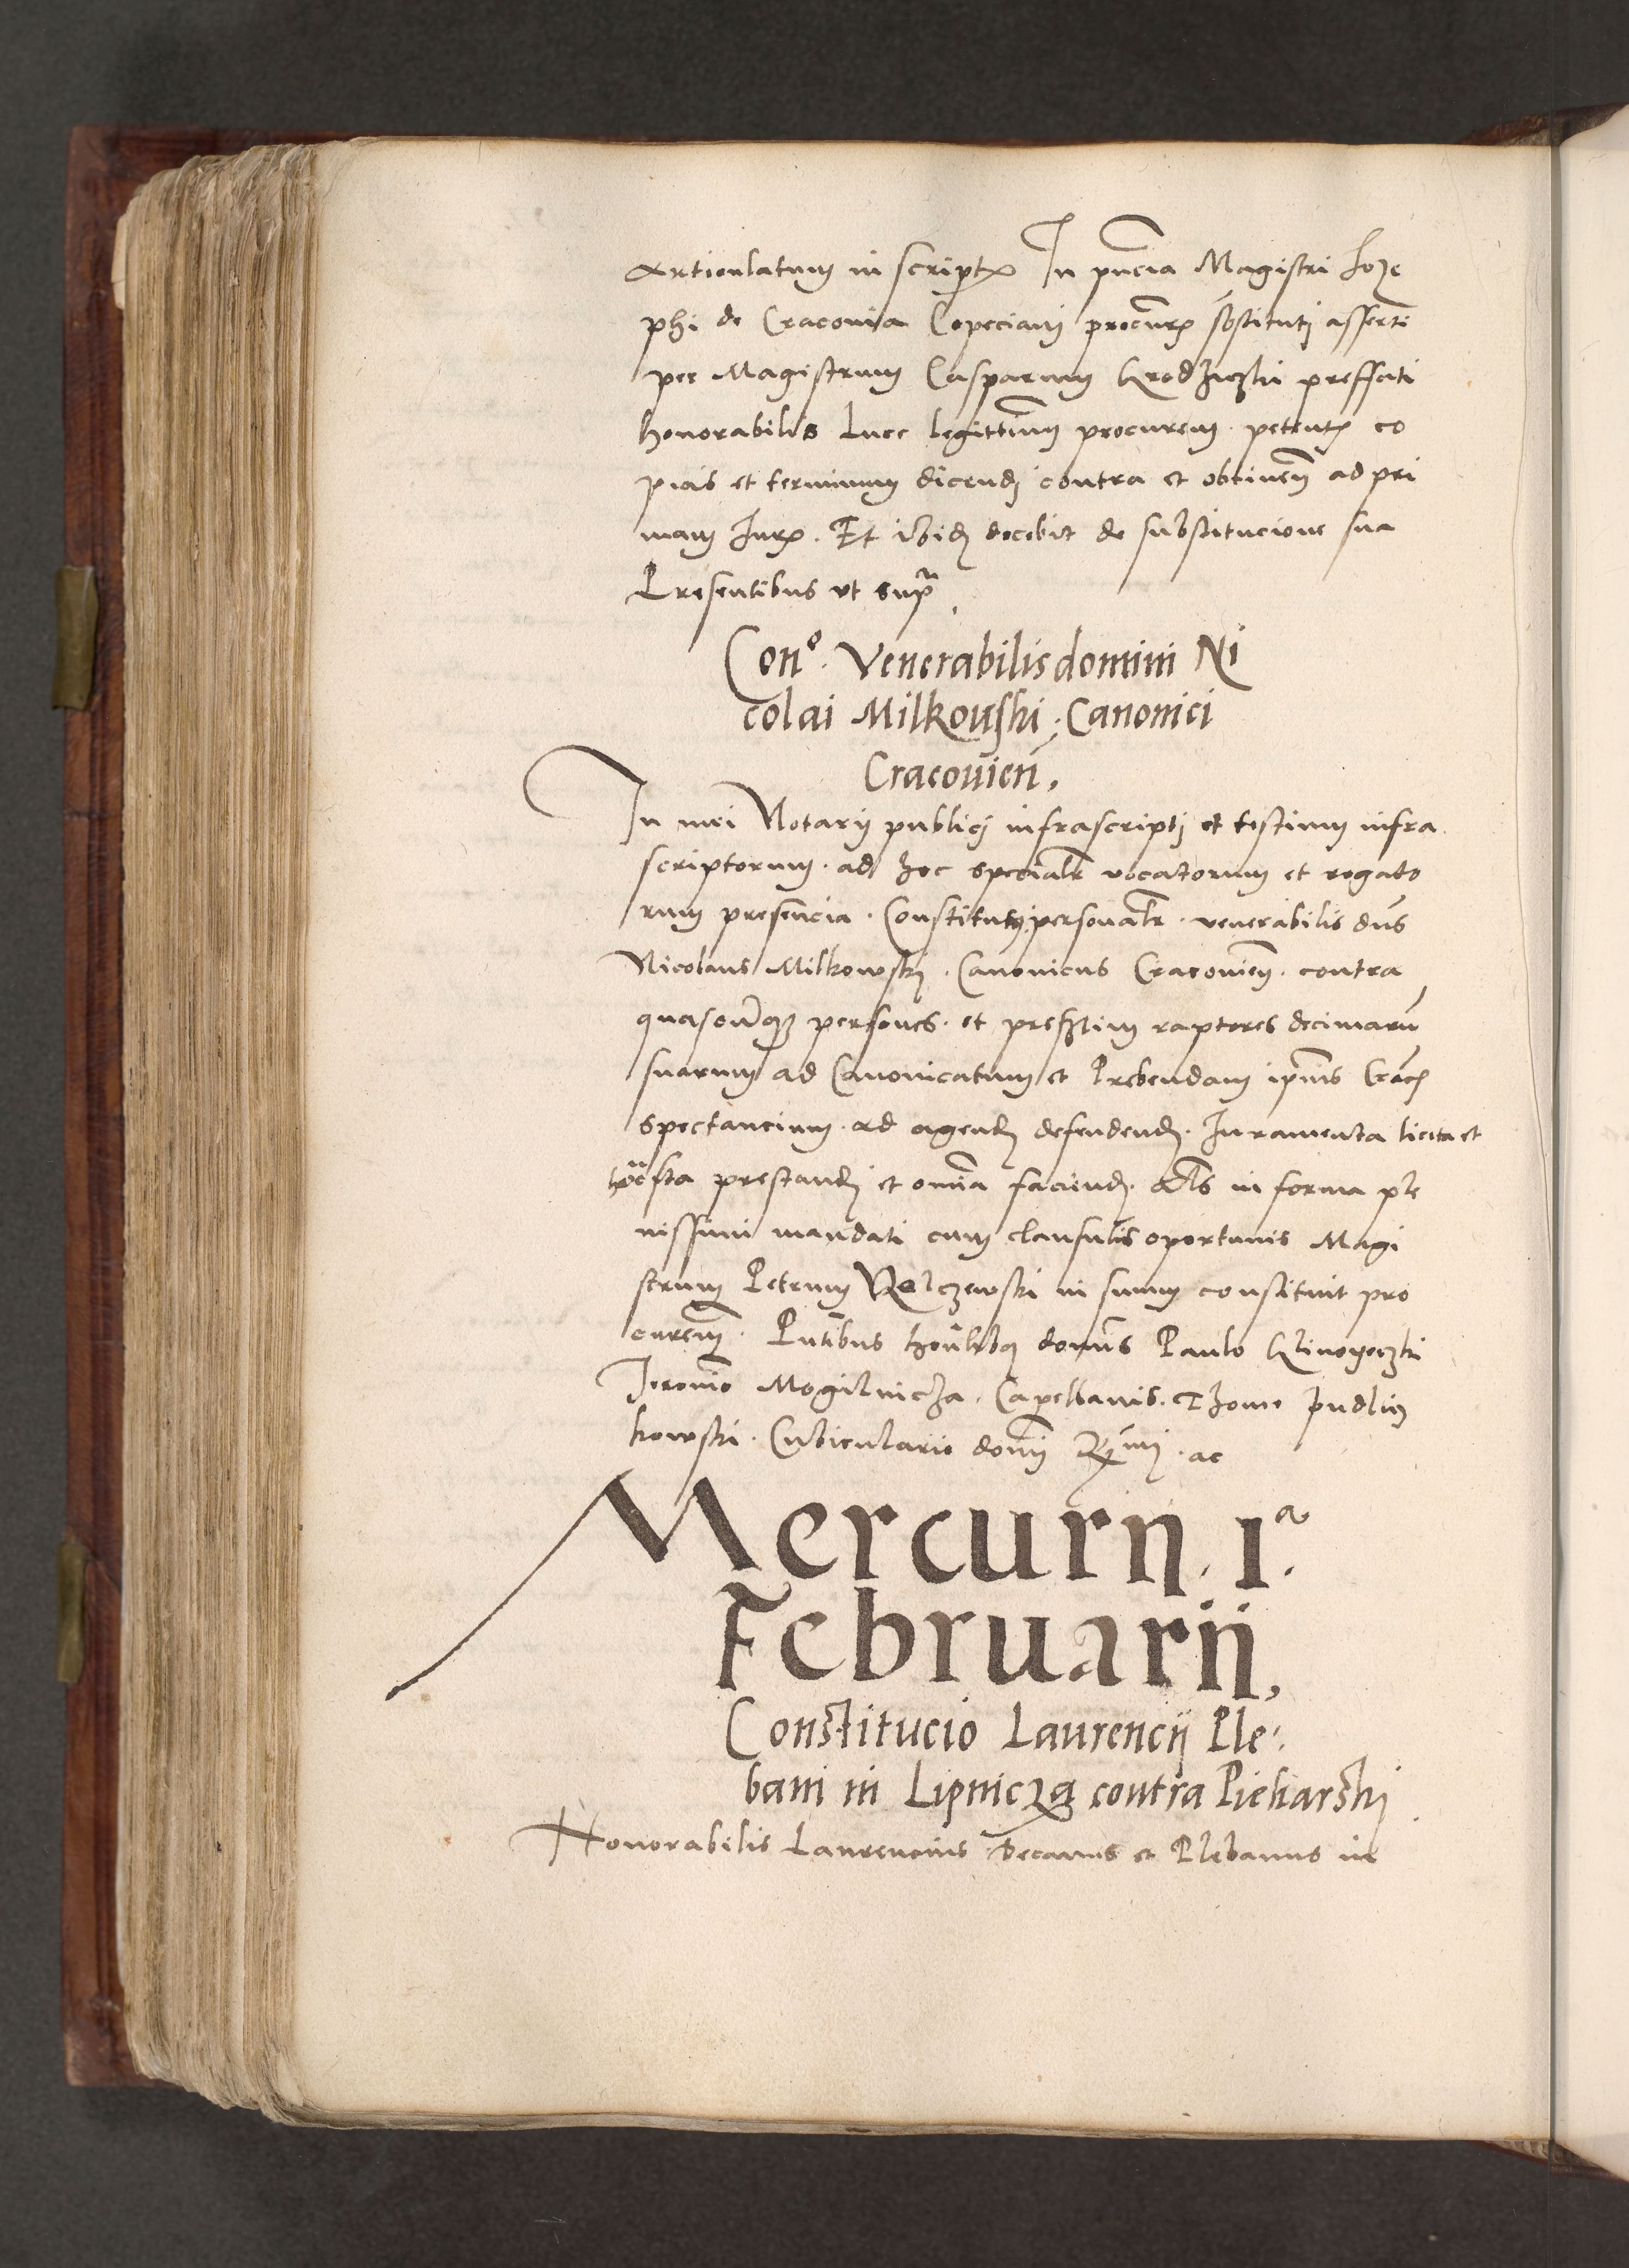 Articulatum in scriptis In pñcia Magistri Joze
phi de Cracovia Copeciani procũris sbstituti asserti
per Magistrum Casparum prefati
honorabilis Luce legittimũ procurem. petentis co
piais et terminum dicendj contra et obtineñ ad pri
mam Juris. Et ibidem docebit de substitucione sua
Presentibus ut supra
Con.º Venerabilis domini Ni
colai Milkouski. Canonici
Cracouien.
In mei Notarij publicj infrascriptj et testium infra
scriptorum. ad hoc specialr vocatorum et rogato
rum presencia. Constitutus personalr. venerabilis dñs
Nicolaus Milkowskj. Canonicus Cracovieñ. contra
quascũqz personas. et presertim raptores decimarũ
suarum ad Canonicatum et Prebendam ipsius Craco
spectancium. ad agend defendend. Juramenta licita et
hõesta prestand et omnia faciend. als in forma ple
nissimi mandati cum clausulis oportunis Magi
strum Petrum in suum constituit pro
curem. Pñtibus dominis Paulo
Jeronimo Mogilnicza. Capellanis. Thoma Pudlin
kowski. Cubiculario domini Rmi. ac
Mercurij. 1ª.
Februarij,
Constitucio Laurencij Ple:
bani in Lipnicza contra Piekarskj
Honorabilis Laurencius Decanus et Plebanus in